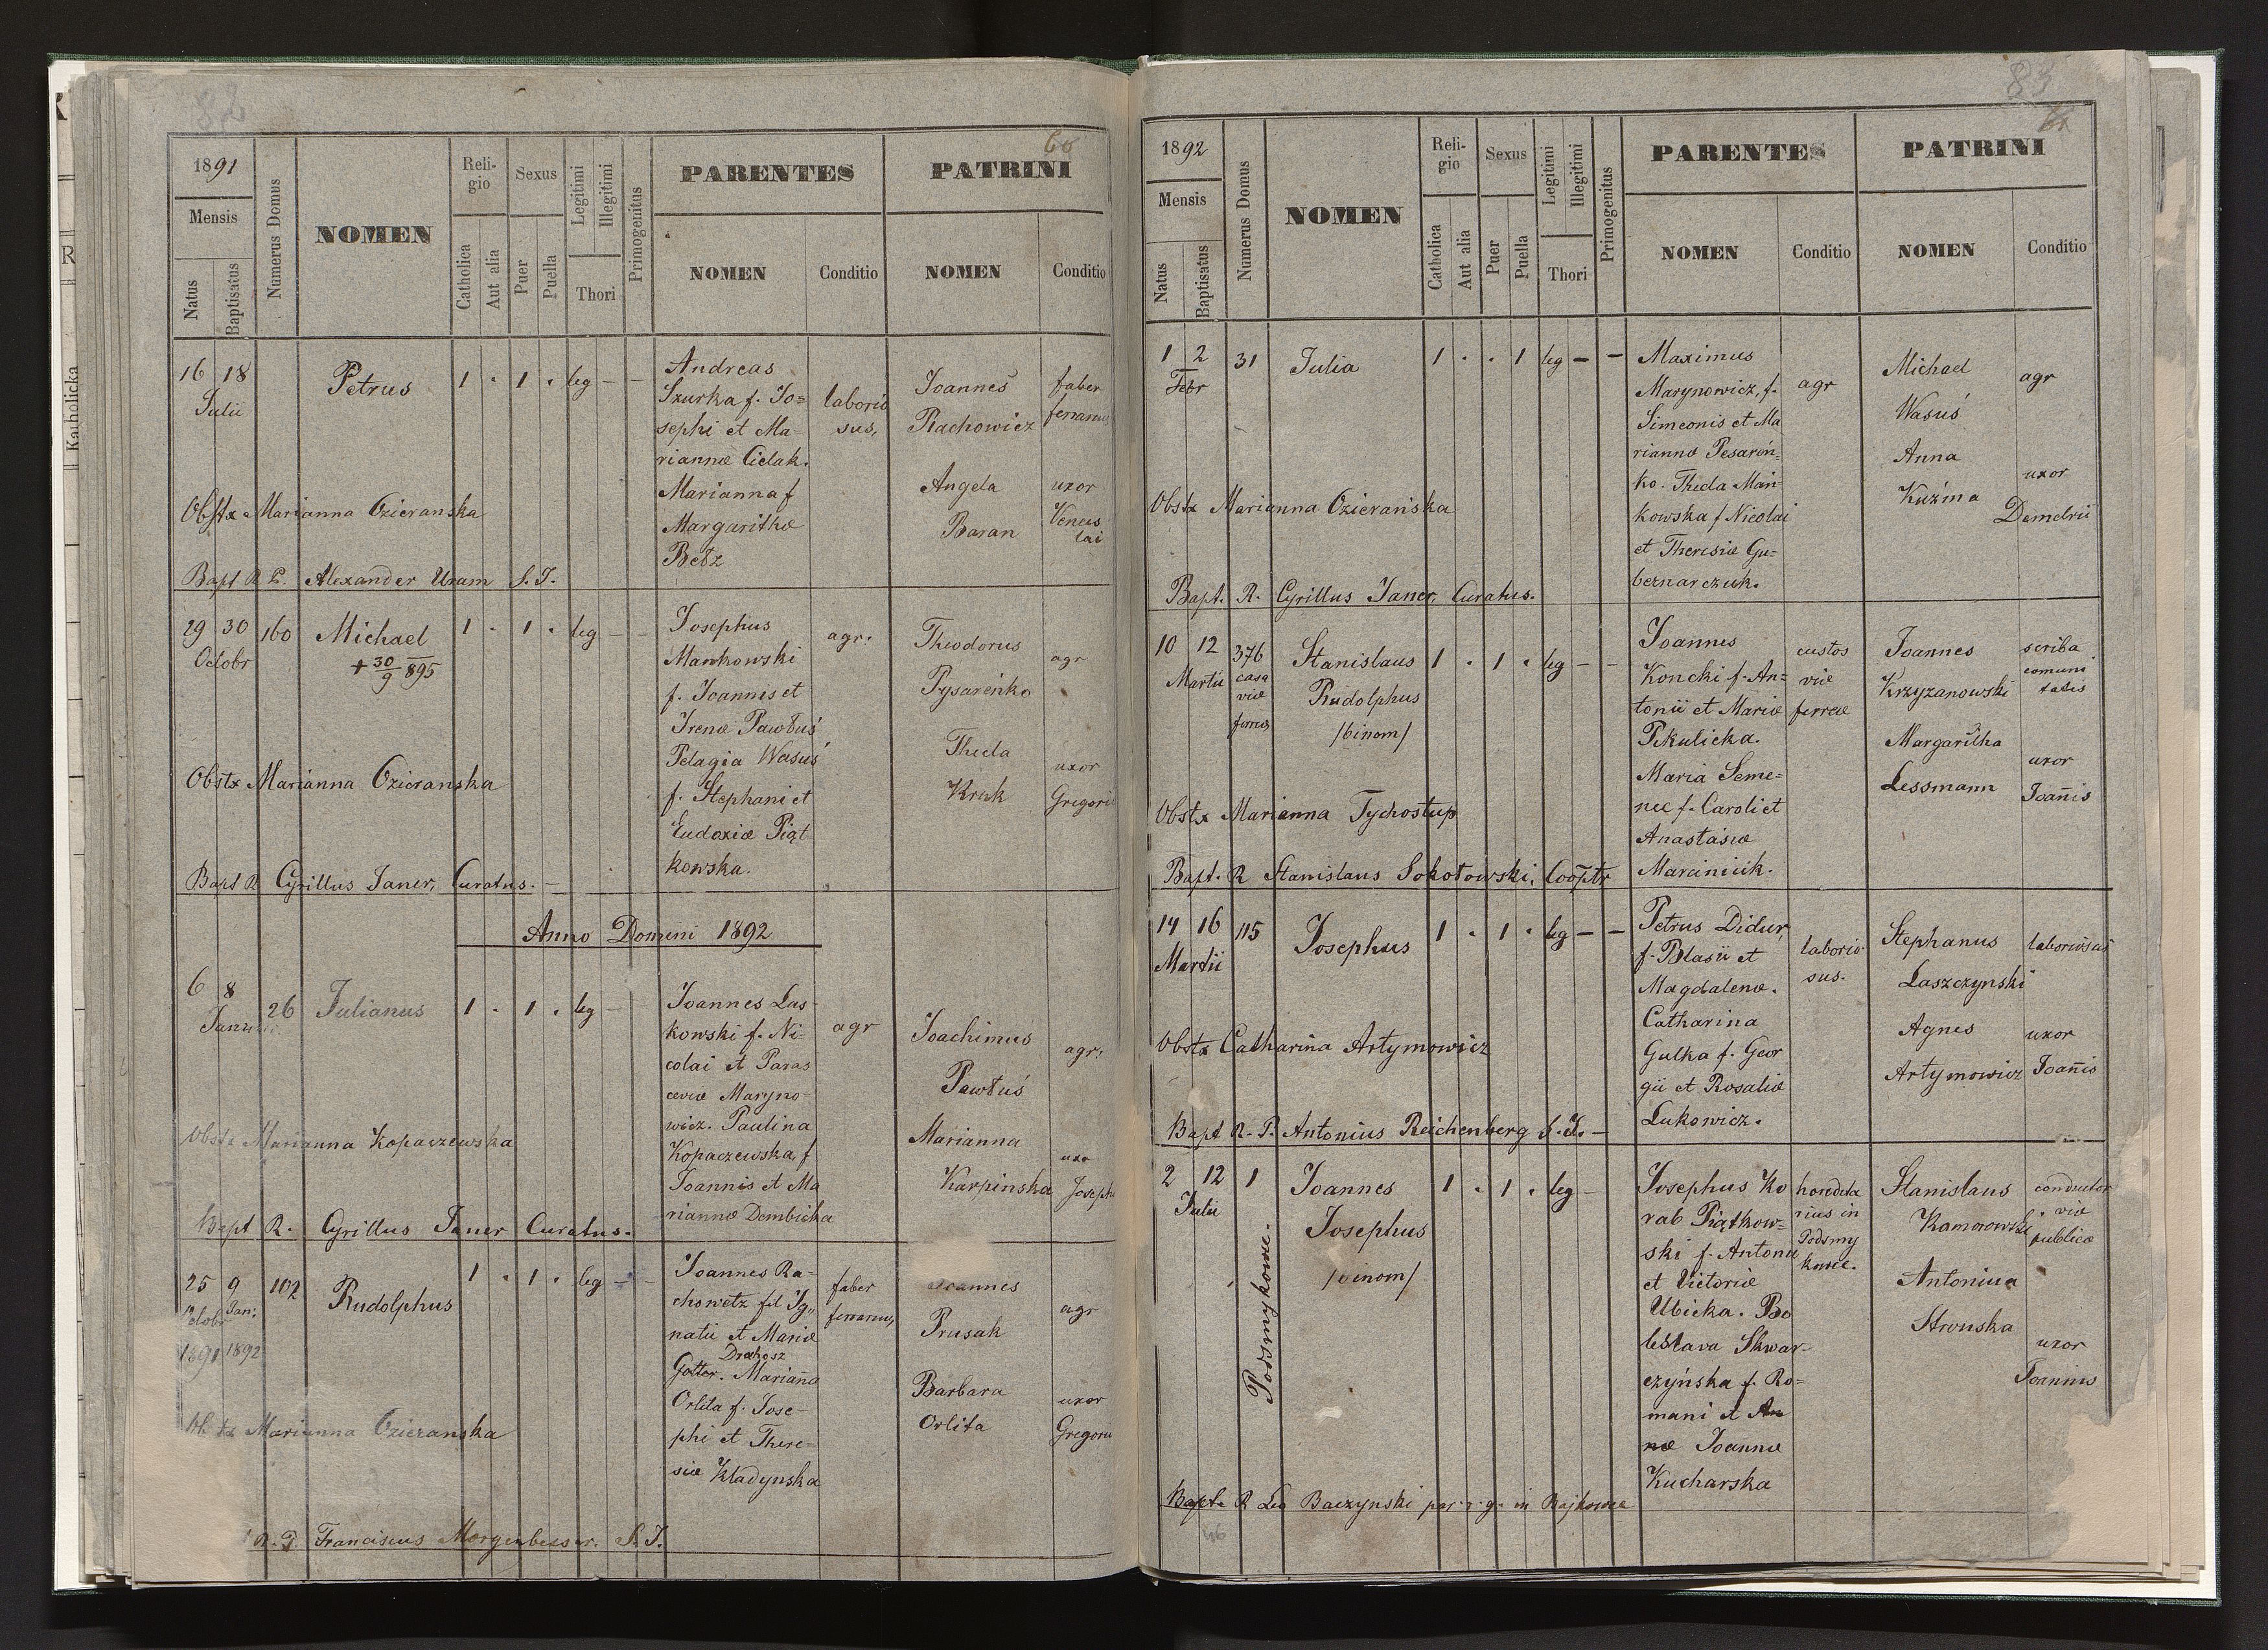 82
66
1891
Mensis
Natus
Baptisatus
Numerus Domus
NOMEN
Reli-
gio
Catholica
Aut alia
Sexus
Puer
Puella
Legitimi
Illegitimi
Thori
Primogenitus
PARENTES
NOMEN
Conditio
PATRINI
NOMEN
Conditio
16 18
Julii
Petrus
1 . 1 . leg - -
Andreas
Szurka f. Jo=
sephi et Ma-
riannæ Cielak.
Marianna f
Margarithæ
Betz
laborio
sus,
Joannes
Rachowicz
faber
ferrarius
Angela
Baran
uxor
Vences
lai
Obstx Marianna Ozieranska
Bapt R P. Alexander Uram S. J.
29 30
Octobr
160
Michael
+ 30/9 895
1 . 1 . leg - -
Josephus
Mankowski
f. Joannis et
Irenæ Pawłuś
Pelagia Wasuś
f. Stephani et
Eudoxiæ Piąt
kowska.
agr.
Theodorus
Pysareńko
agr
Thecla
Kruk
uxor
Gregorii
Obstx Marianna Ozieranska
Bapt R Cyrillus Janer, Curatus. -
Anno Domini 1892
6 8
26
Julianus
1 . 1 . leg -
Joannes Las-
kowski f. Ni-
colai et Paras
ceviæ Maryno-
wicz. Paulina
Kopaczewska, f
Joannis et Ma
riannæ Dembicka
agr
Joachimus
Pawłuś
agr,
Marianna
Karpinska
uxo
Josephi
Obstx Marianna Kopaczewska
Bapt R. Cyrillus Janer Curatus.
25 9
Octobr Jan:
1891 1892
102
Rudolphus
1 . 1 . leg - -
Joannes Ra-
chowetz fil Ig,,
natii et Mariæ
Drahosz
Gotter. Marianna
Orlita f. Jose-
phi et There-
siæ Kladynska
faber
ferrarius,
Joannes
Prusak
agr
Barbara
Orlita
uxor
Gregorii
Obstx Marianna Ozieranska
R. P. Franciscus Morgenbesser. S. J.
83
1892
Mensis
Natus
Baptisatus
Numerus Domus
NOMEN
Reli-
gio
Catholica
Aut alia
Sexus
Puer
Puella
Legitimi
Illegitimi
Thori
Primogenitus
PARENTES
NOMEN
Conditio
PATRINI
NOMEN
Conditio
1 2
Febr
31
Julia
1 . . 1 leg - -
Maximus
Marynowicz, f.
Simeonis et Ma
riannæ Pesarón-
ko. Thecla Mań-
kowska f Nicolai
et Theresiæ Gu=
bernarczuk.
agr
Michael
Wasuś
agr
Anna
Kuźma
uxor
Demetrii
Obstx Marianna Ozierańska
Bapt. R. Cyrillus Janer, Curatus.
10 12
Martii
376
casa
viæ
ferreæ
Stanislaus
Rudolphus
/binom/
1 . 1 . leg - -
Joannes
Koncki f. An=
tonii et Mariæ
Pekulicka.
Maria Seme=
nec f. Caroli et
Anastasiæ
Marciniuk.
custos
viæ
ferreæ
Joannes
Krzyzanowski
scriba
comuni
tatis
Margaritha
Lessmann
uxor
Joañis
Obstx Marianna Tychostup
Bapt. R Stanislaus Sokołowski, Coõptr
14 16
Martii
115
Josephus
1 . 1 . leg - -
Petrus Didur
f. Blasii et
Magdalenæ.
Catharina
Gulka f. Geor
gii et Rosaliæ
Lukowicz.
laborio
sus.
Stephanus
Laszczynski
laboriosus
Agnes
Artymowicz
uxor
Joañis
Obstx Catharina Artymowicz
Bapt R. P. Antonius Reichenberg S. J. -
2 12
Julii
1
Podsmykowce.
Joannes
Josephus
/binom/
1 . 1 . leg -
Josephus Ko
rab Piątkow=
ski f. Antonii
et Victoriæ
Ubicka. Bo
leslava Skwar-
czyńska f. Ro=
mani et An
næ Joannæ
Kucharska
hæredita
rius in
Podsmy
kowce.
Stanislaus
Komorowski
conductor
viæ
publicæ
Antonina
Stronska
uxor
Joannis
Bapt. R Leo Baczynski par. r. g. in Bajkowce
46